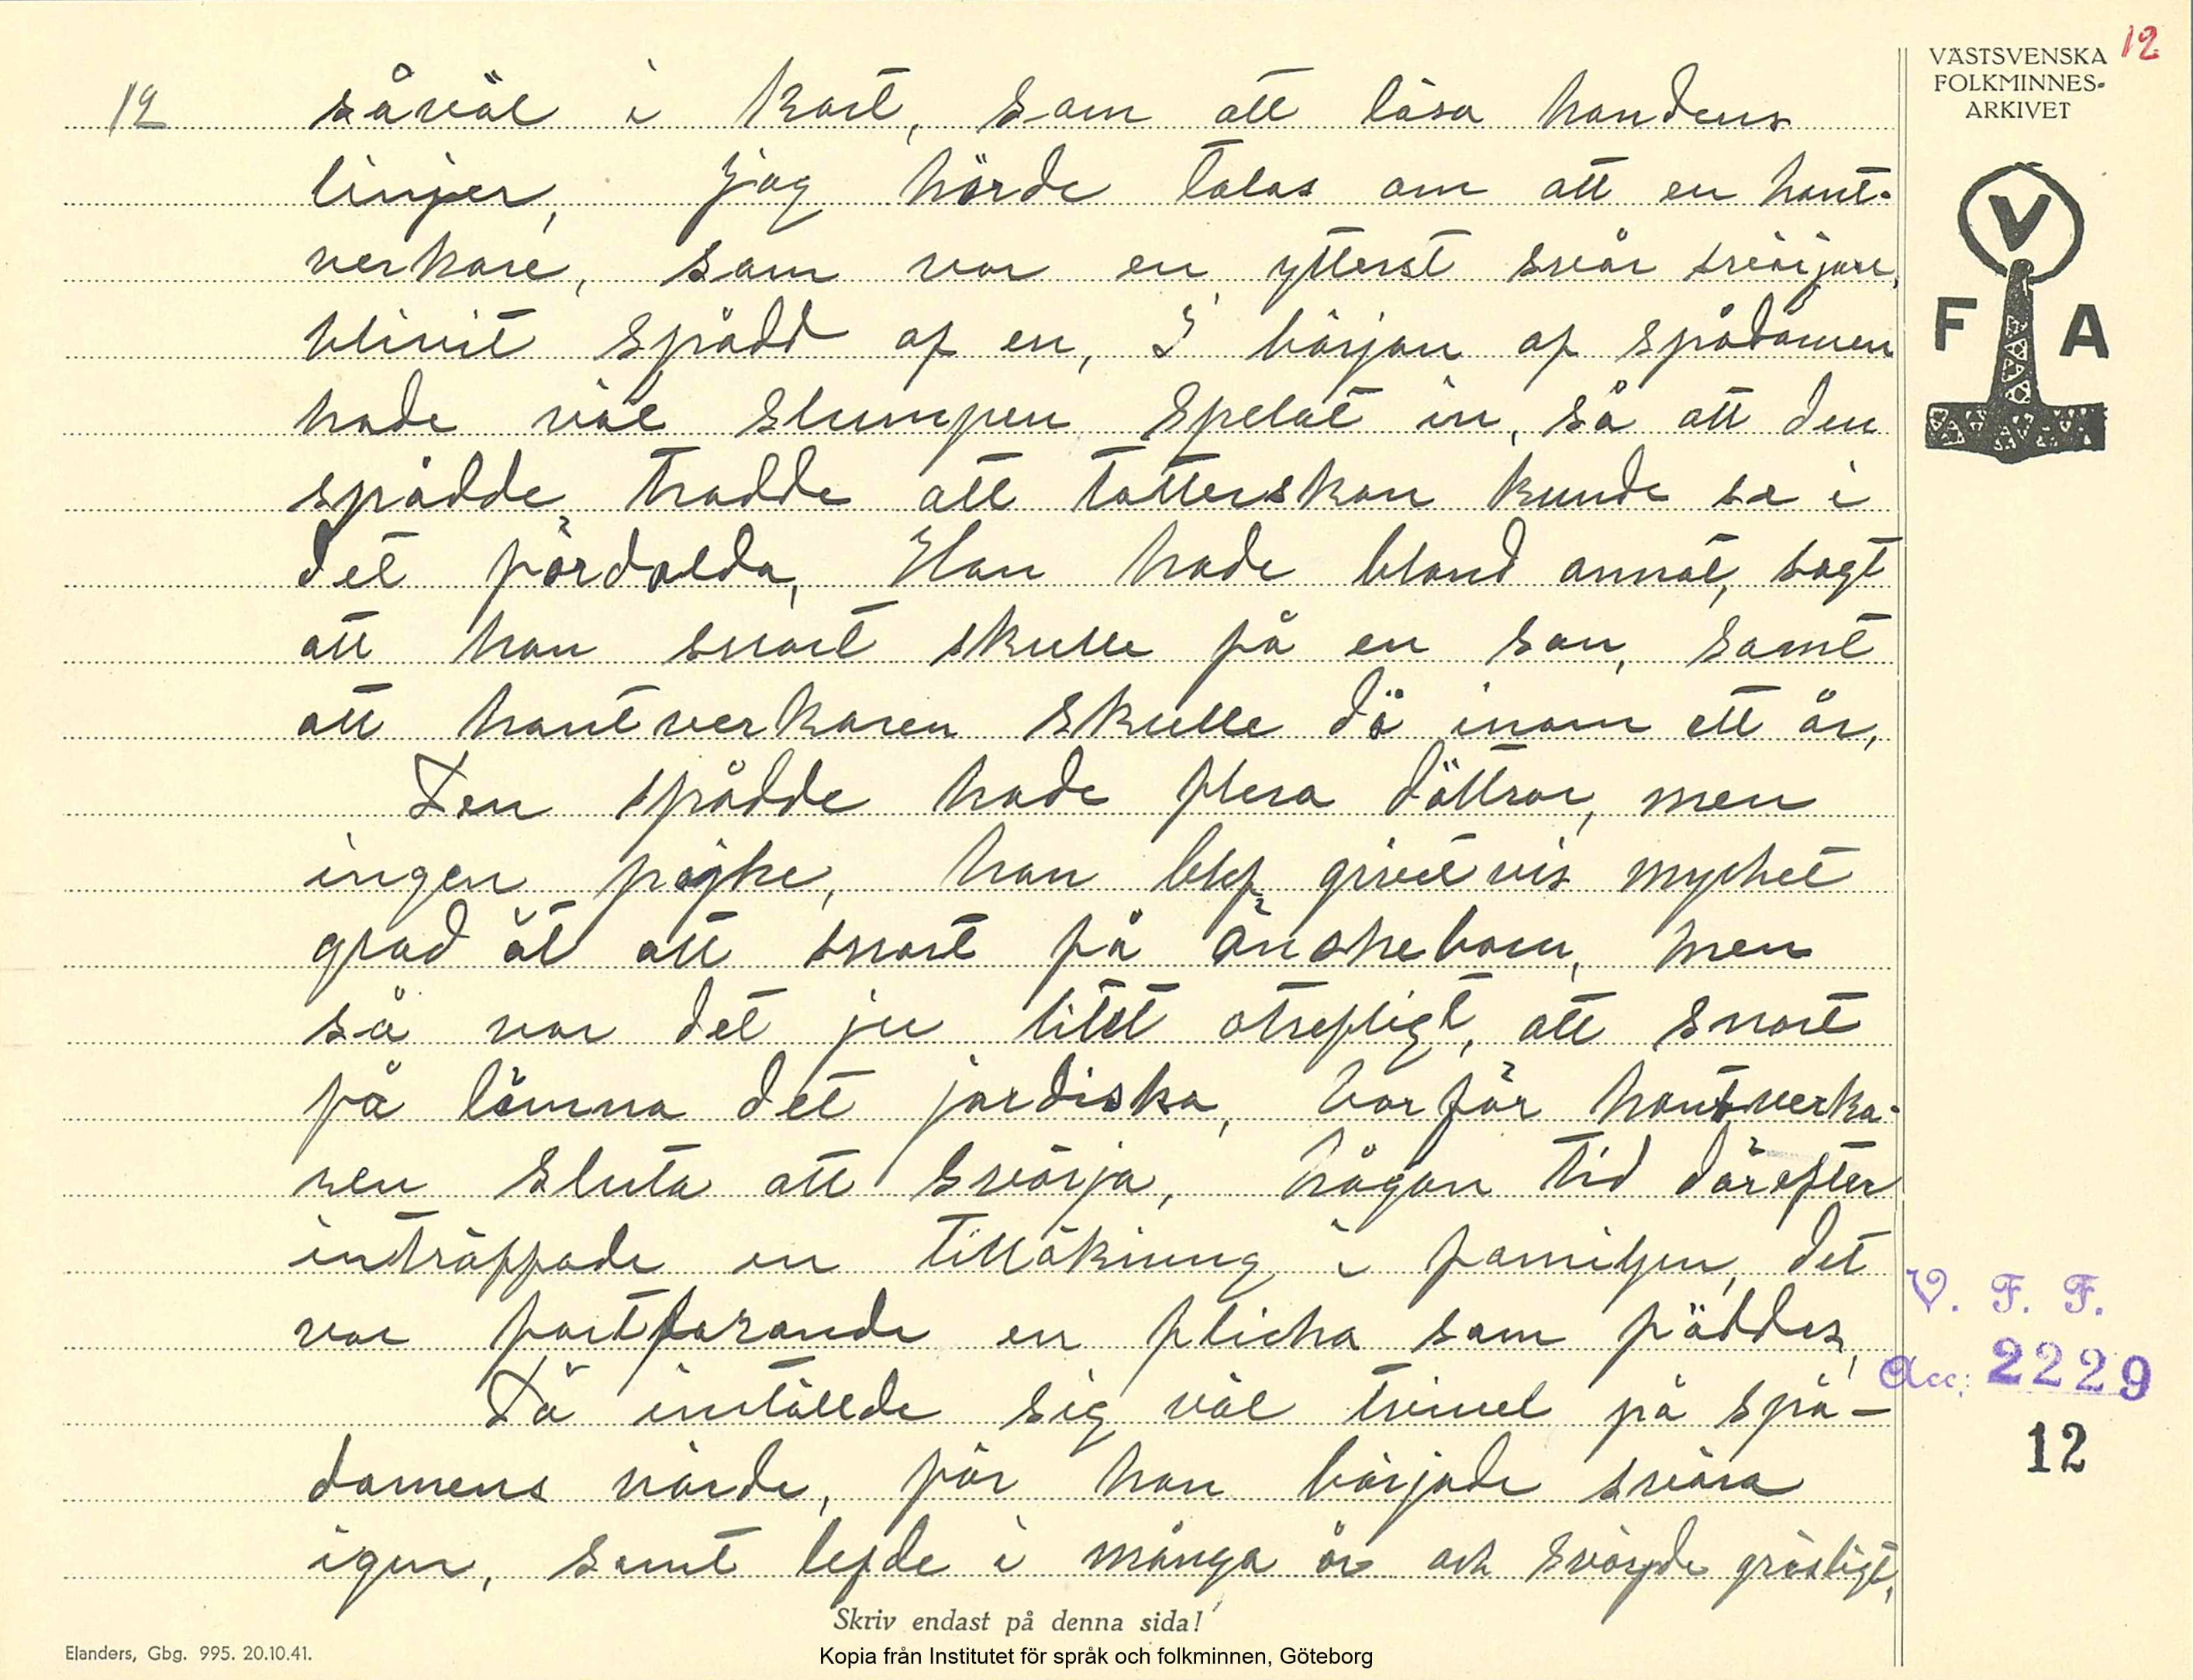 12
VÄSTSVENSKA
FOLKMINNES-
ARKIVET
12 såväl i kort, som att läsa handens
linjer, Jag hörde talas om att en hant-
verkare, som var en ytterst svår svärjare,
blivit spådd af en, I början af spådomen
hade väl slumpen spelat in, så att den
spådde, trodde att tatterskan kunde se i
det fördolda, Hon hade bland annat, sagt
att han snart skulle få en son, samt
att hantverkaren skulle dö inom ett år,
Den spådde hade flera döttrar, men
ingen pojke, han blef givetvis mycket
glad åt att snart få önskebarn, men
så var det ju litet otrefligt, att snart
få lämna det jordiska, varför hantverka-
ren sluta att svärja, någon tid därefter
inträffade en tillökning i familjen, det
var fortfarande en flicka som föddes,
Då instälde sig väl tvivel på spå-
domens värde, för han började svära
igen, samt lefde i många år och svärjde gräsligt,
V
F A
V. F. F.
Acc. 2229
12
Skriv endast på denna sida!
Elanders, Gbg. 995. 20.10.41.
Kopia från Institutet för språk och folkminnen, Göteborg